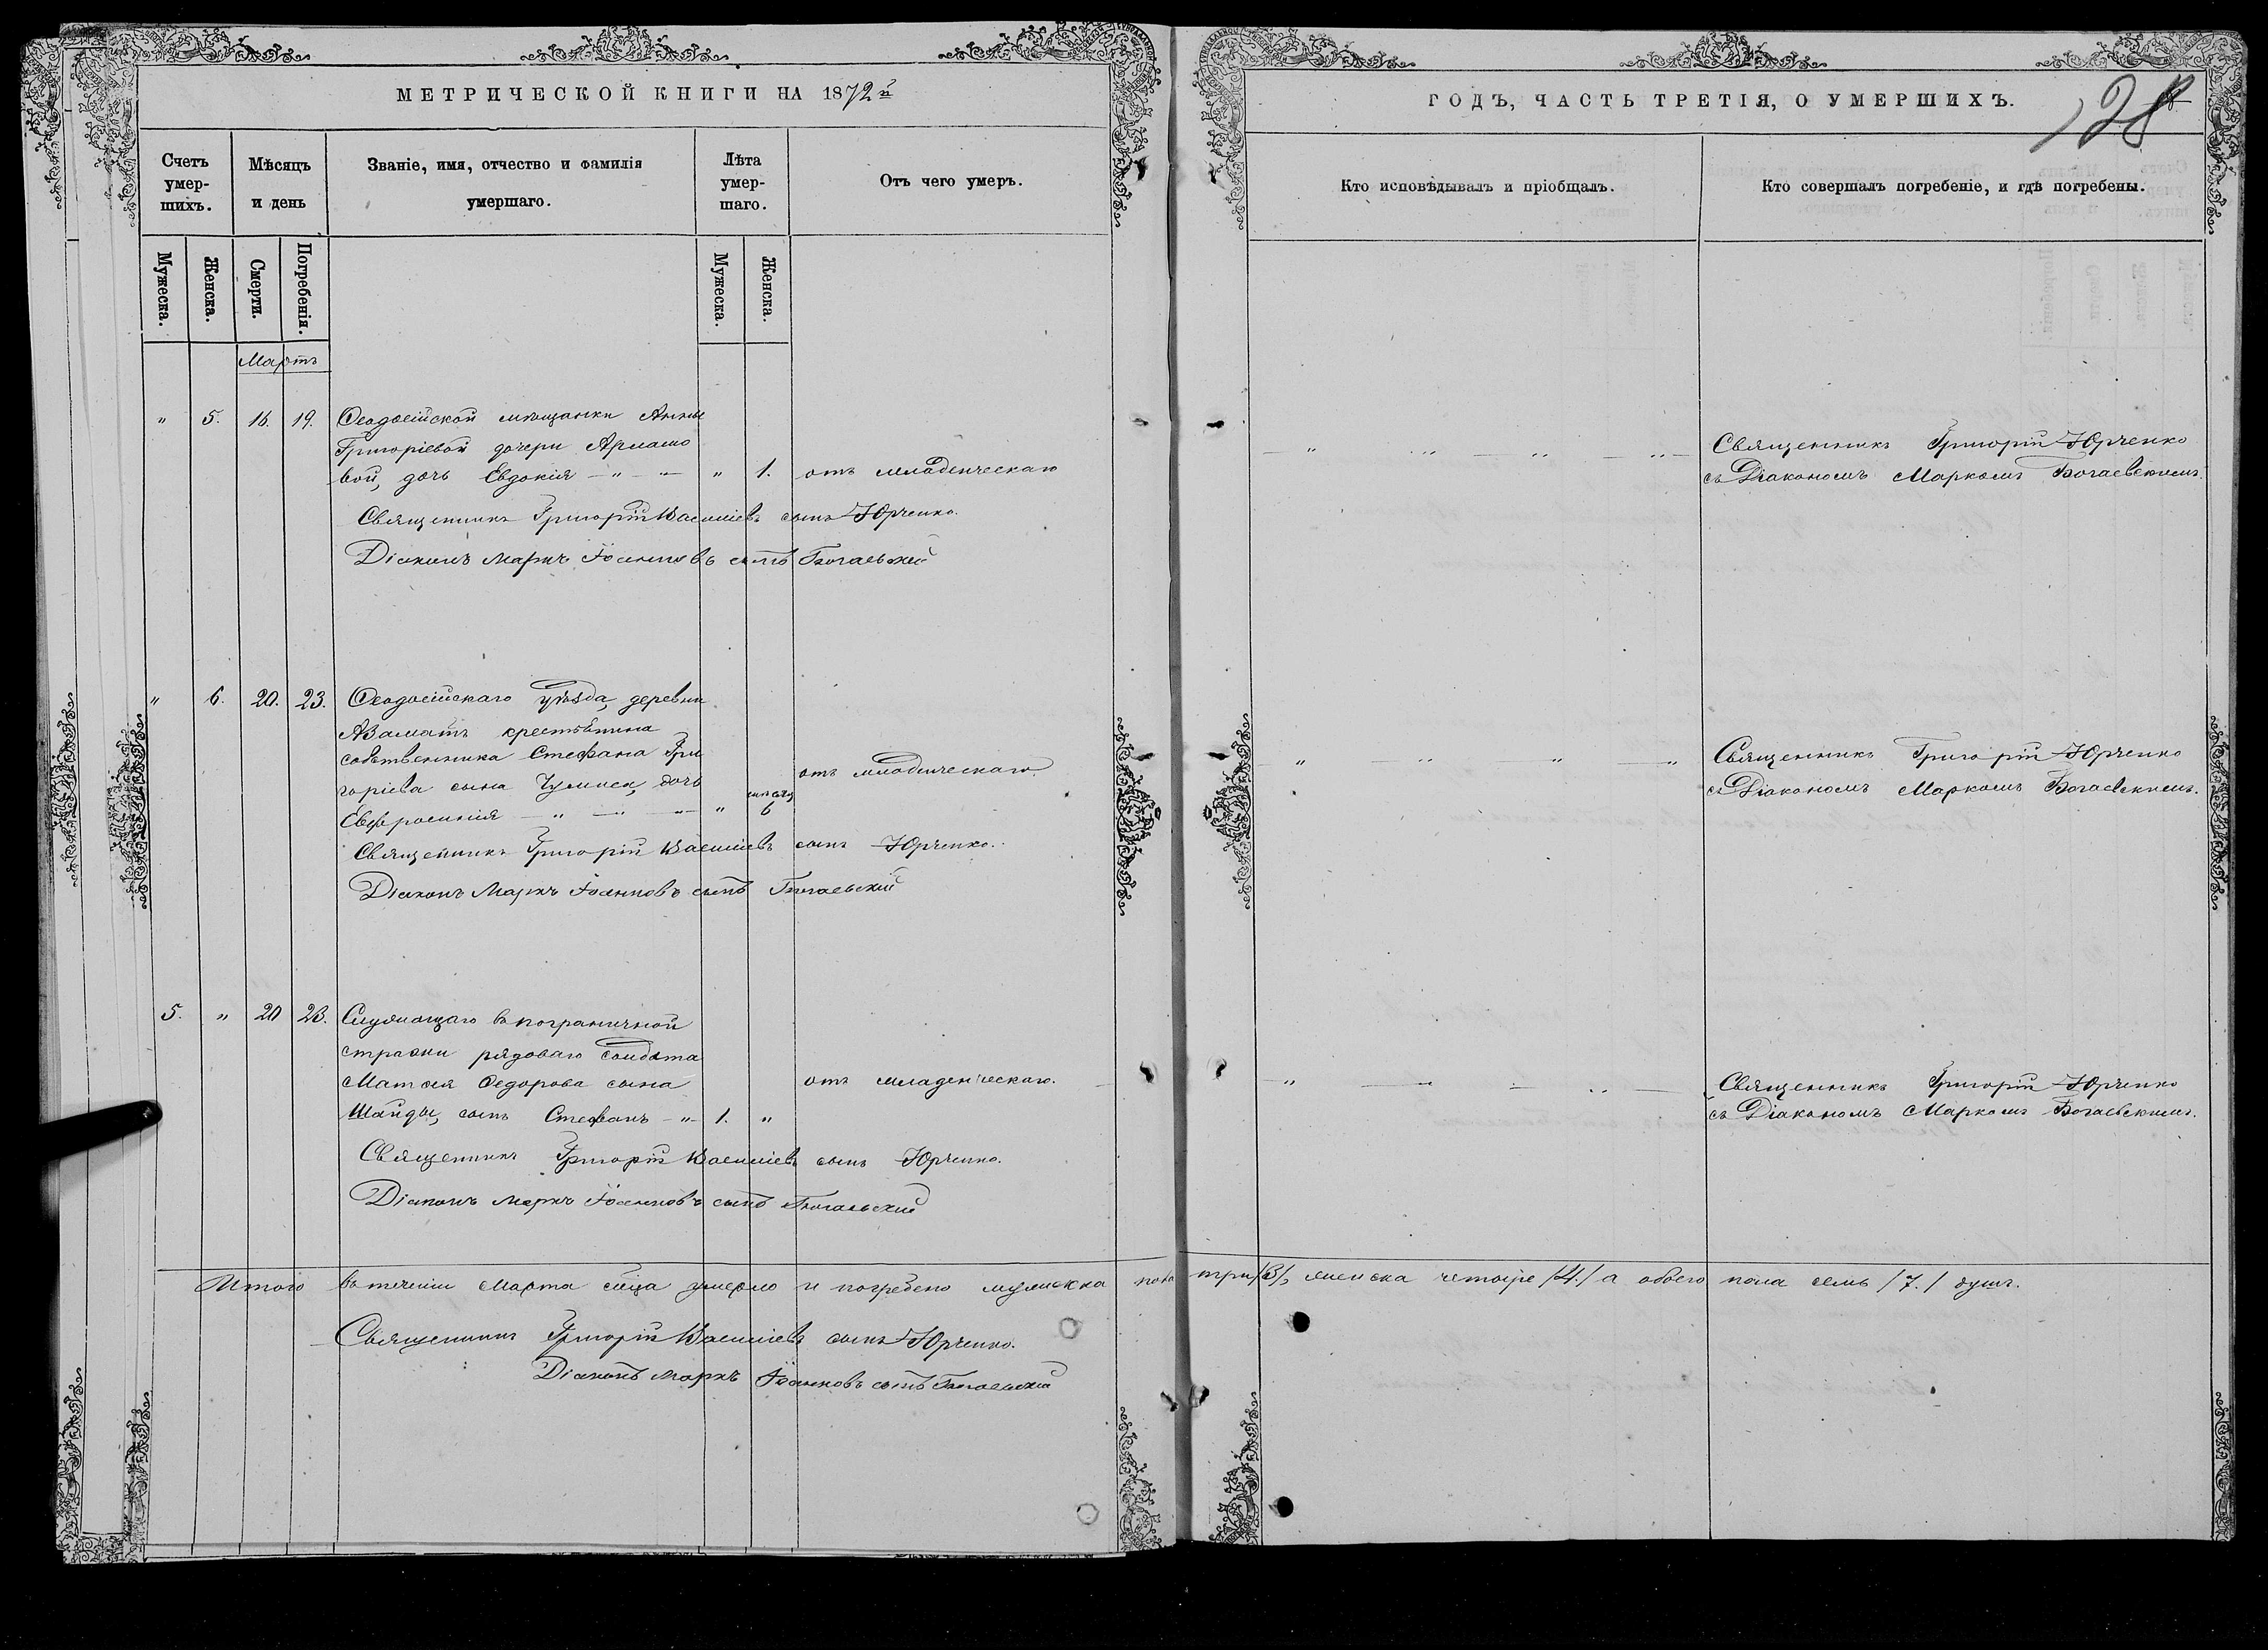 МЕТРИЧЕСКОЙ КНИГИ НА 1872й
ГОДЪ, ЧАСТЬ ТРЕТІЯ, О УМЕРШИХЪ.
128
Счетъ умер-шихъ.
Мѣсяцъ и день
Званіе, имя, отчество и фамилія умершаго.
Лѣта умер-шаго.
Отъ чего умеръ.
Кто исповѣдывалъ и пріобщалъ.
Кто совершалъ погребеніе, и гдѣ погребены.
Мужеска.
Женска.
Смерти.
Погребенія.
Мужеска.
Женска.
Мартъ
" 5. 16. 19. Ѳеодосійской мѣщанки Анны
Григоріевой дочери Армашо
вой, дочь Евдокія — " — " 1. отъ младенческаго
Священникъ Григорій Юрченко
съ Діакономъ Маркомъ Богаевскимъ.
Священникъ Григорій Василіевъ сынъ Юрченко.
Діаконъ Маркъ Іоанновъ сынъ Богаевскій
" 6. 20. 23. Ѳеодосійскаго уѣзда, деревни
Азаматъ крестьянина
собственника Стефана Гри
горіева сына Чумака, дочь
Евфросинія — " — " — " 6 отъ младенческаго.
Священникъ Григорій Юрченко
съ Діакономъ Маркомъ Богаевскимъ.
Священникъ Григорій Василіевъ сынъ Юрченко.
Діаконъ Маркъ Іоанновъ сынъ Богаевскій
5. " 20 23. Служащаго въ пограничной
стражи рядоваго солдата
Матѳея Ѳедорова сына
Шайды, сынъ Стефанъ — " — 1. " отъ младенческаго.
Священникъ Григорій Юрченко
съ Діакономъ Маркомъ Богаевскимъ.
Священникъ Григорій Василіевъ сынъ Юрченко.
Діаконъ Маркъ Іоанновъ сынъ Богаевскій
Итого въ теченіи Марта м-ца умерло и погребено мужеска пола три /3/, женска четыре /4./ а обоего пола семь /7./ душъ.
Священникъ Григорій Василіевъ сынъ Юрченко.
Діаконъ Маркъ Іоанновъ сынъ Богаевскій